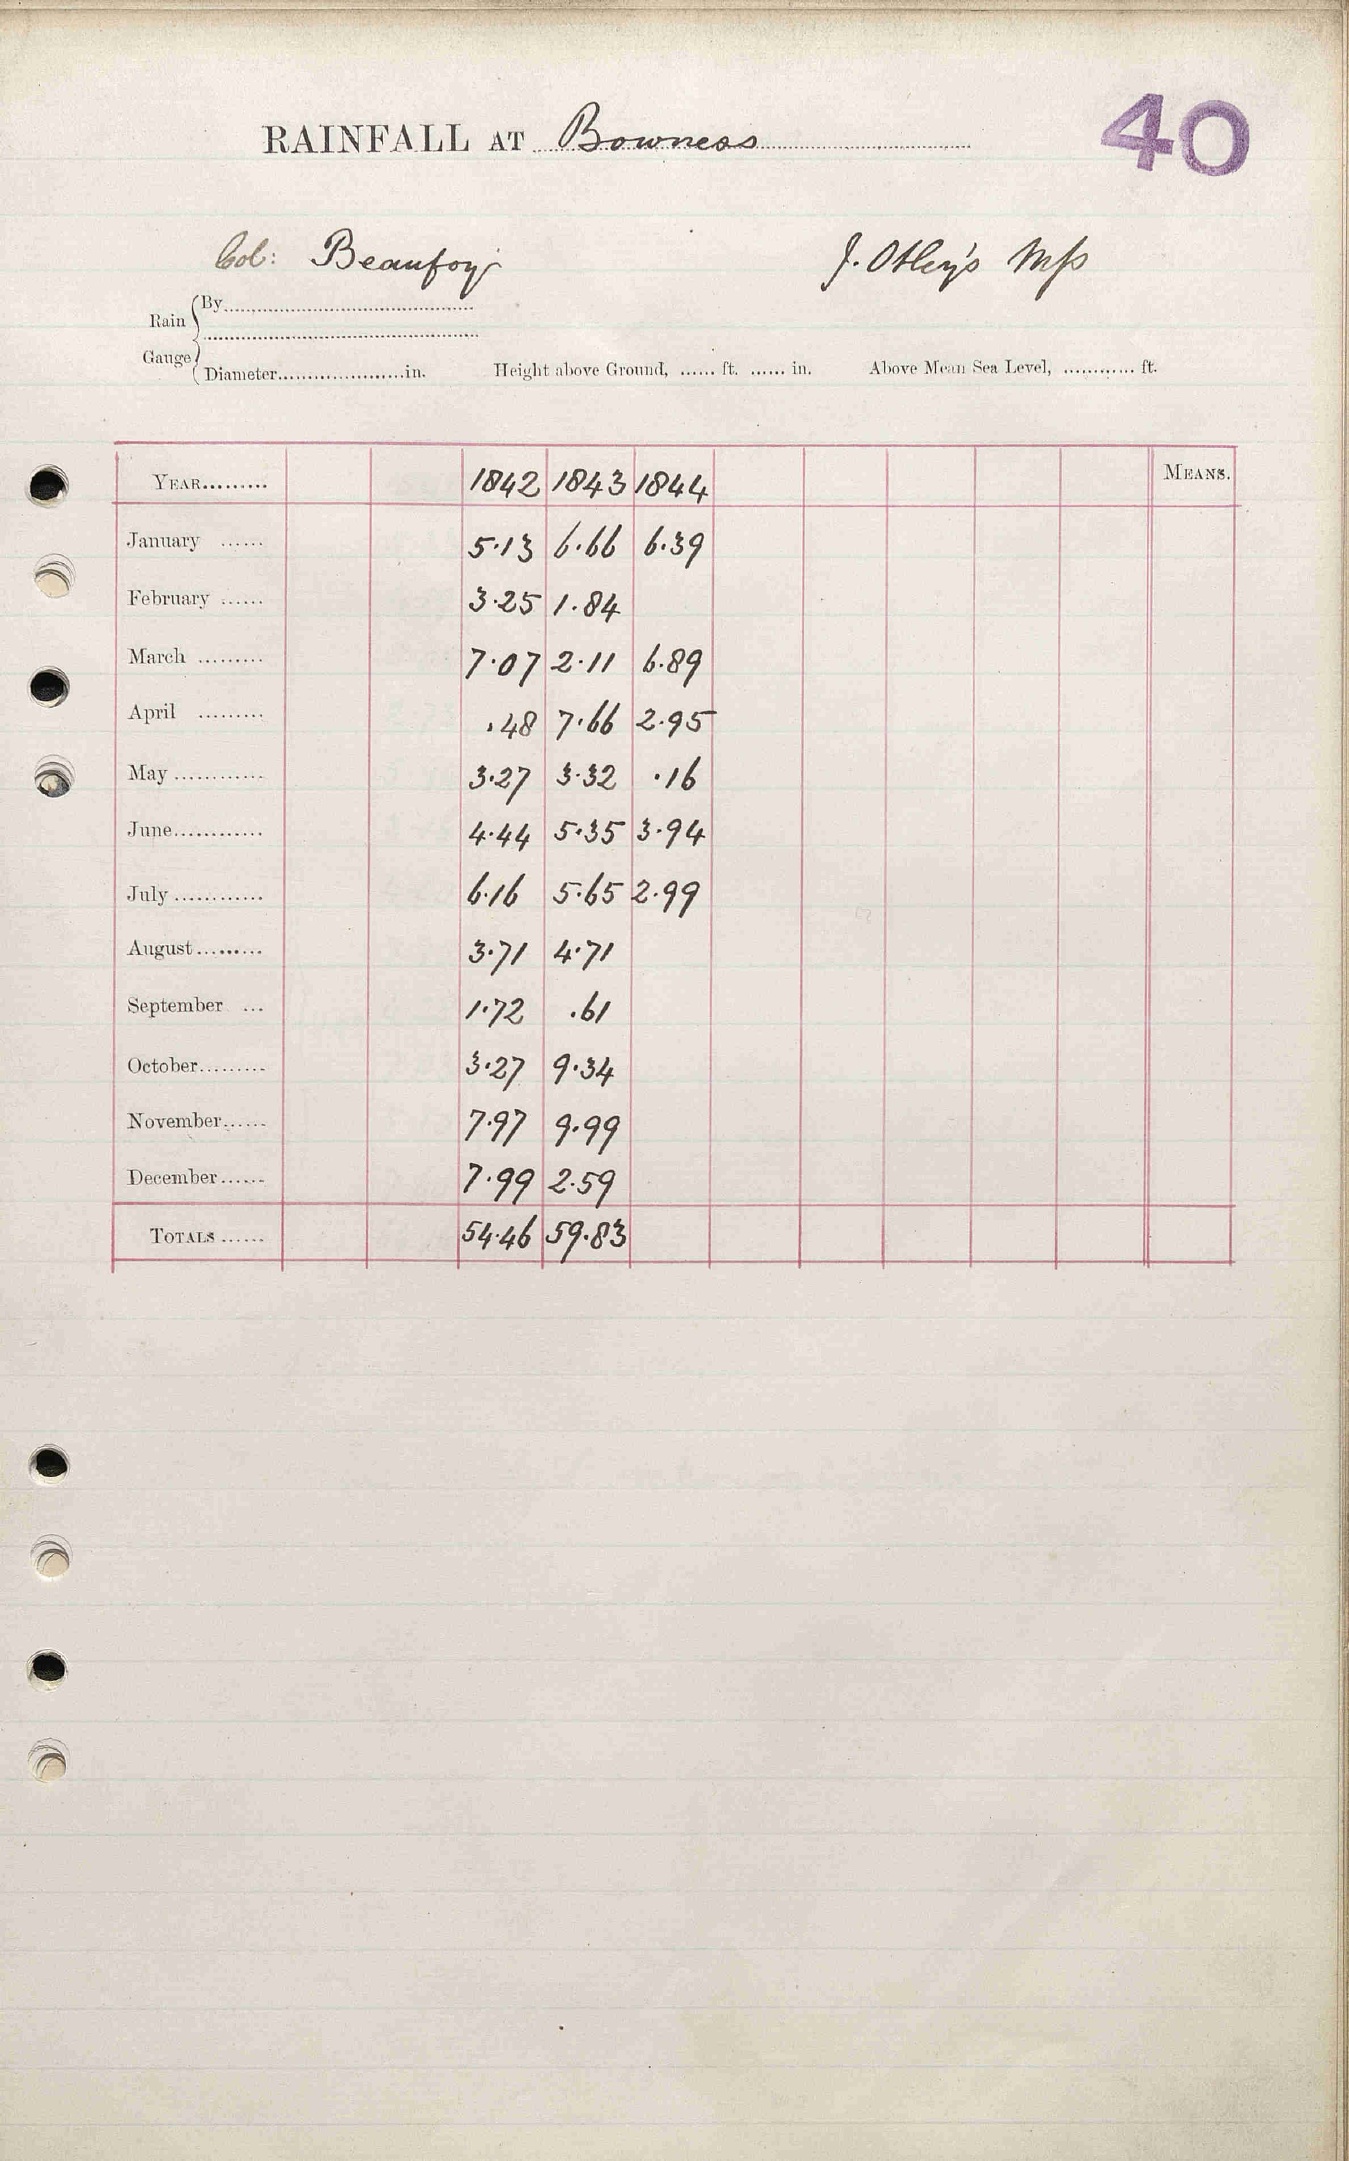 RAINFALL AT Bowness
40
Col: Beaufoy
J. Otley's Mss
Rain Gauge
By
Diameter in. Height above Ground, ft. in. Above Mean Sea Level, ft.
YEAR 1842 1843 1844 MEANS.
January 5.13 6.66 6.39
February 3.25 1.84
March 7.07 2.11 6.89
April .48 7.66 2.95
May 3.27 3.32 .16
June 4.44 5.35 3.94
July 6.16 5.65 2.99
August 3.71 4.71
September 1.72 .61
October 3.27 9.34
November 7.97 9.99
December 7.99 2.59
TOTALS 54.46 59.83